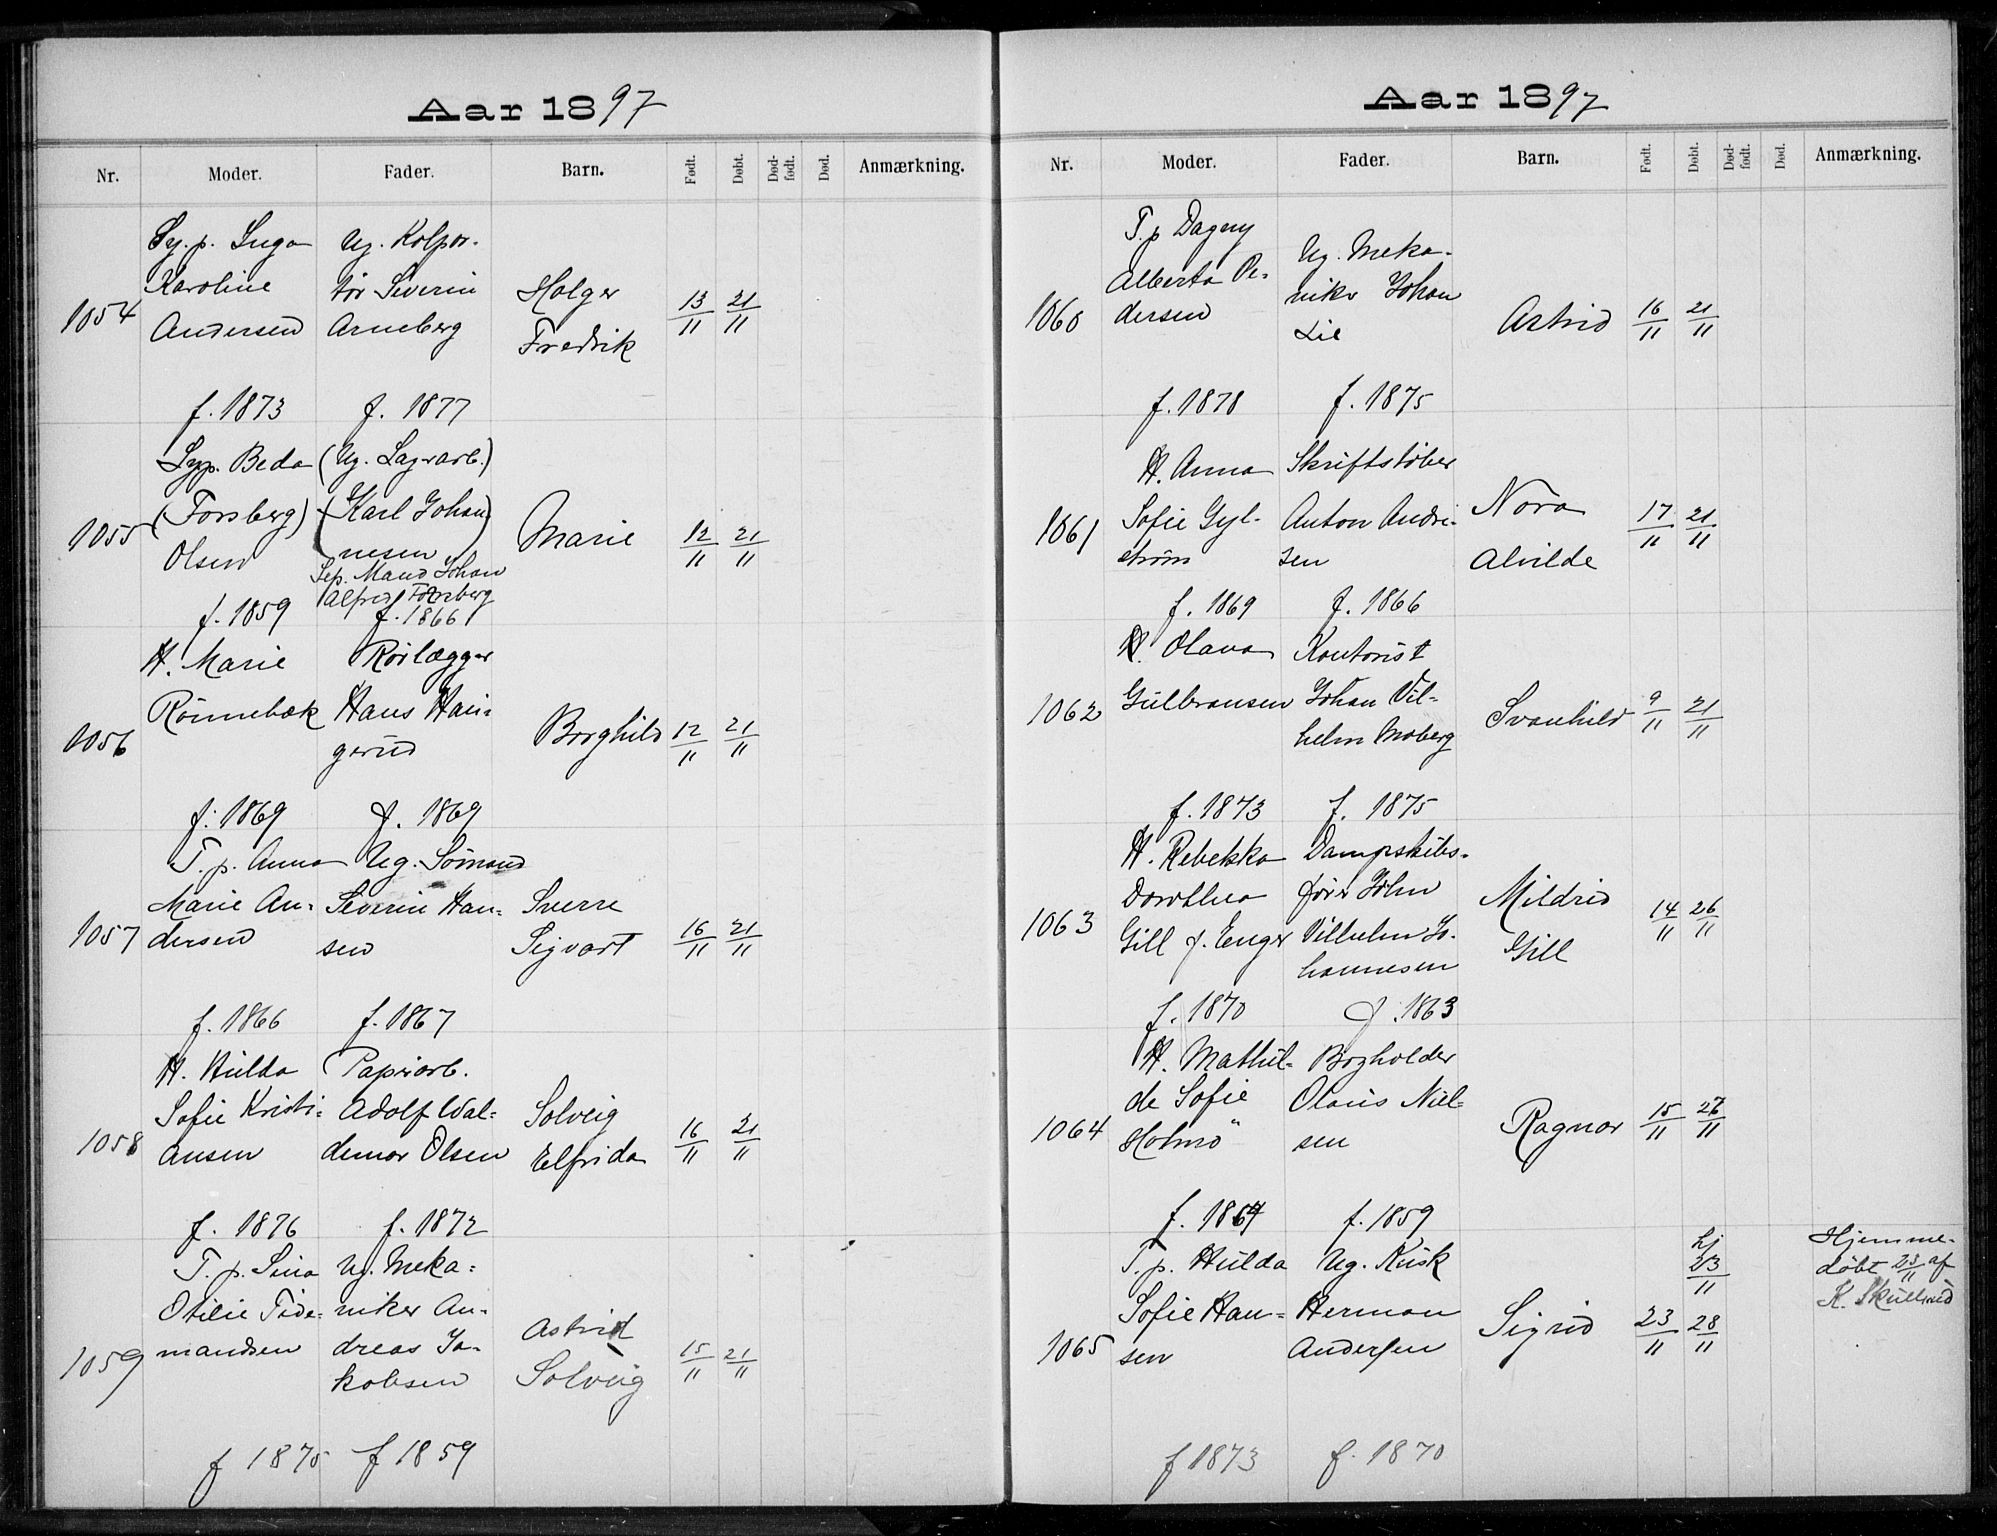 Aar 1897
Nr. Moder. Fader. Barn. Født. Døbt. Død-født. Død. Anmærkning.
1054
Sy.p. Inga
Karoline
Andersen
f. 1873
Ug. Kolpor-
tør Severin
Arneberg
f. 1877
Holger
Fredrik
13/11 21/11
1055
Syp. Beda
(Forsberg)
Olsen
f. 1859
(Ug. Lagerarb.)
(Karl Johan)
nesen
Sep. Mand Johan
Alfred Forsberg
f. 1866
Marie
12/11 21/11
1056
H. Marie
Rønnebæk
f. 1869
Rørlægger
Hans Hau-
gerud
f. 1869
Borghild
12/11 21/11
1057
T.p. Anna
Marie An-
dersen
f. 1866
Ug. Sømand
Severin Han-
sen
f. 1867
Sverre
Sigvart
16/11 21/11
1058
H. Hulda
Sofie Kristi-
ansen
f. 1876
Papirarb.
Adolf Wal-
demar Olsen
f. 1872
Solveig
Elfrida
16/11 21/11
1059
T.p. Sina
Otilie Tide-
mandsen
f 1875
Ug. Meka-
niker An-
dreas Ja-
kobsen
f 1859
Astrid
Solveig
15/11 21/11
Aar 1897
Nr. Moder. Fader. Barn. Født. Døbt. Død-født. Død. Anmærkning.
1060
T.p Dagny
Alberta Pe-
dersen
f. 1878
Ug. Meka-
niker Johan
Lie
f. 1875
Astrid
16/11 21/11
1061
H. Anna
Sofie Gyl-
strøm
f. 1869
Skriftstøber
Anton Andre-
sen
f. 1866
Nora
Alvilde
17/11 21/11
1062
H. Olava
Gulbransen
f. 1873
Kontorist
Johan Vil-
helm Moberg
f. 1875
Svanhild
9/11 21/11
1063
H. Rebekka
Dorothea
Gill f. Enger
f. 1870
Dampskibs-
fører John
Vilhelm Jo-
hannesen
f. 1863
Mildrid
Gill
14/11 26/11
1064
H. Mathil-
de Sofie
Holmø
f. 1864
Bogholder
Olaus Niel-
sen
f. 1859
Ragnar
15/11 27/11
1065
T.p. Hulda
Sofie Han-
sen
f 1873
Ug. Kusk
Herman
Andersen
f. 1870
Sigrid
23/11
hj
23/11
28/11
Hjemme-
døbt 23/11 af
K. Skullerud